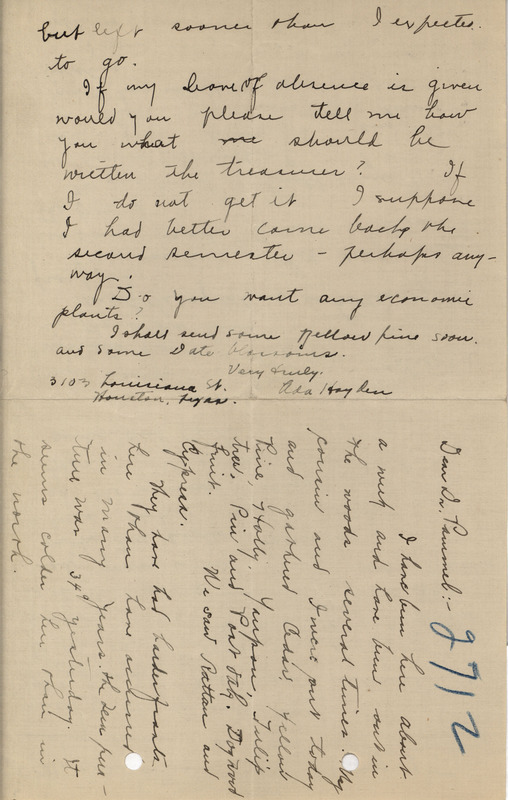 but left sooner than I expected
to go.
If my leave of absence is given
would you please tell me how
you what me should be
written the treasurer? If
I do not get it I suppose
I had better come back the
second semester - perhaps any-
way.
Do you want any economic
plants?
I shall send some Yellow pine soon.
and some Date blossoms.
Very truly.
3103 Louisiana St. Ada Hayden
Houston, Texas.
2712
Dear Dr. Pammel:-
I have been here about
a week and have been out in
the woods several times. My
cousin and I were out today
and gathered Cedar, Yellow
Pine, Holly, Yaupon, Tulip
tree, Pin and Post Oak. Dogwood
fruit. We saw Rattan and
Cypress.
They have had harder frosts
here than have occurred
in many years. The tempera-
ture was 34 yesterday. It
seems colder here than in
the north.